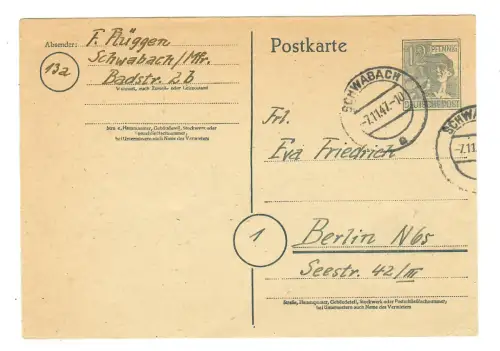 Absender:
F. Flüggen
Schwabach/Mfr.
Badstr. 2b
13a
Wohnort, auch Zustell- oder Leitpostamt
Straße, Hausnummer, Gebäudeteil, Stockwerk oder
Postschließfachnummer;
bei Untermietern auch Name des Vermieters
Postkarte
12 PFENNIG
DEUTSCHE POST
SCHWABACH
-7.11.47.-10
a
SCHWA
-7.11
Frl.
Eva Friedrich
1
Berlin N 65
Seestr. 42/III
Straße, Hausnummer, Gebäudeteil, Stockwerk oder Postschließfachnummer;
bei Untermietern auch Name des Vermieters